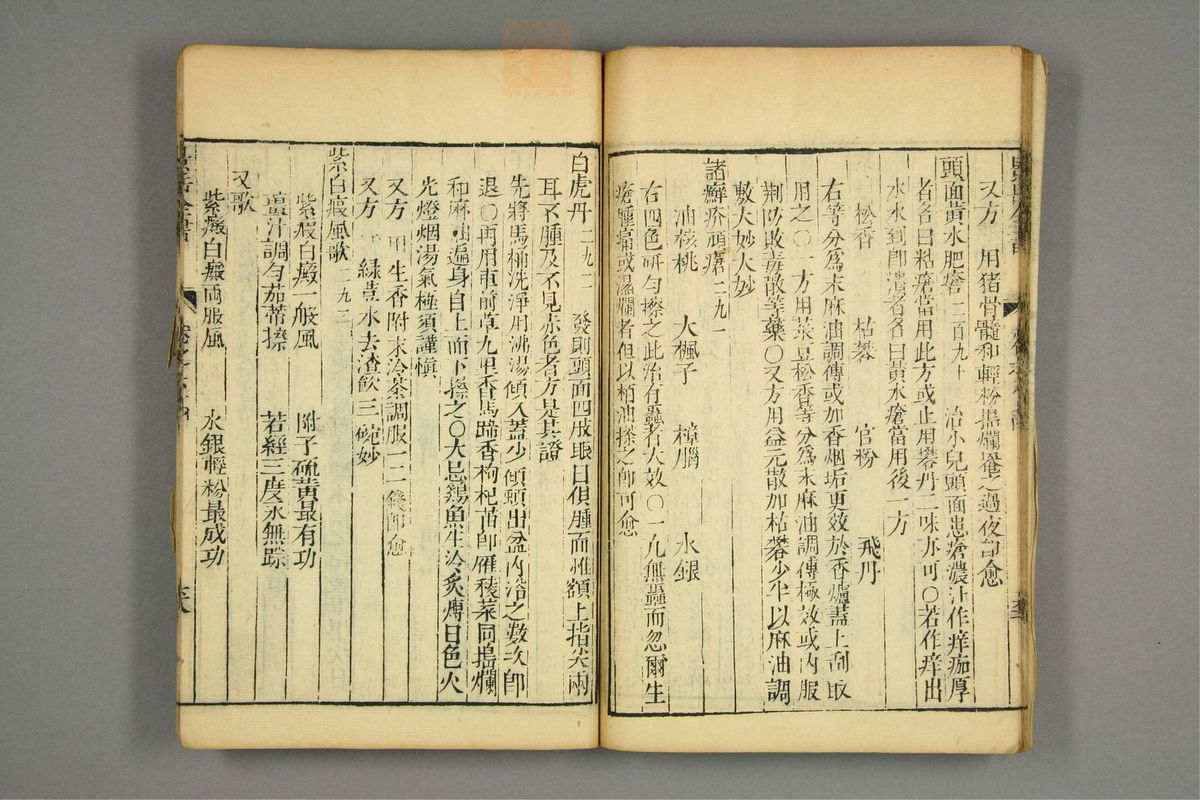 又方 用猪骨髓和輕粉搗爛塗之過夜卽愈
頭面黃水肥瘡二百九十 治小兒頭面患瘡濃汁作痒痂厚
者名曰粘瘡當用此方或止用礬丹二味亦可○若作痒出
水水到卽潰者名曰黃水瘡當用後一方
松香 枯礬 官粉 飛丹
右等分爲末麻油調傅或加香烟垢更效於香爐蓋上刮取
用之○一方用菉豆松香等分爲末麻油調傅極效或內服
荆防敗毒散等藥○又方用益元散加枯礬少半以麻油調
敷大妙大妙
諸癬疥頑瘡二九一
油核桃 大楓子 樟腦 水銀
右四色研勻搽之此治有蟲者大效○一凡無蟲而忽爾生
瘡腫痛或濕爛者但以柏油搽之卽可愈
白虎丹二九二 發則頭面四肢眼目俱腫而惟額上指尖兩
耳不腫及不見赤色者方是其證
先將馬桶洗淨用沸湯傾入蓋少頃傾出盆內浴之數次卽
退○再用車前草九里香馬蹄香枸杞苗卽雁稜菜同搗爛
和麻油遍身自上而下搽之○大忌鷄魚生冷炙煿日色火
光燈烟湯氣極須謹愼
又方 用生香附末冷茶調服一二錢卽愈
又方 綠豆水去渣飲三碗妙
紫白癜風歌二九三
紫癜白癜一般風 附子硫黃最有功
薑汁調勻茄蒂搽 若經三度永無踪
又歌
紫癜白癜兩般風 水銀輕粉最成功